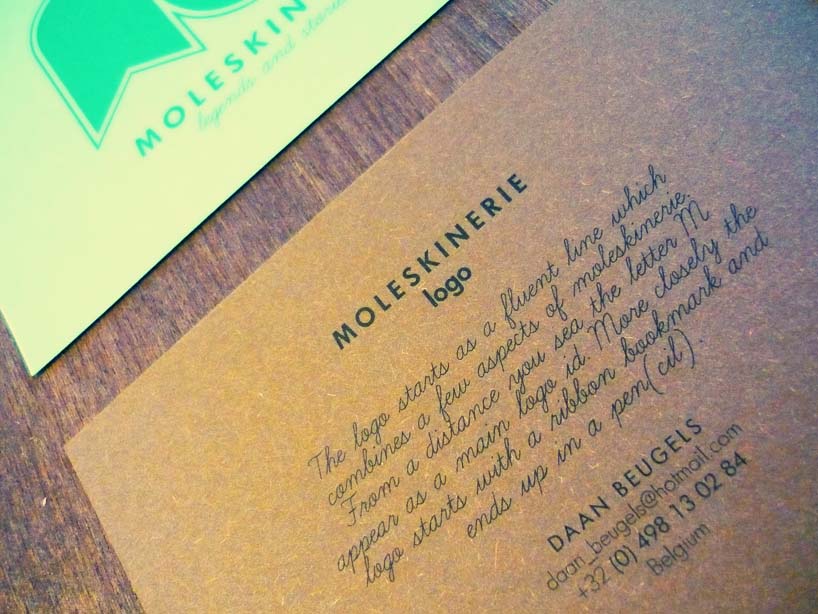 MOLESKIN
legends and stories
MOLESKINERIE
logo
The logo starts as a fluent line which
combines a few aspects of moleskinerie.
From a distance you sea the letter M
appear as a main logo id. More closely the
logo starts with a ribbon bookmark and
ends up in a pen(cil).
DAAN BEUGELS
daan_beugels@hotmail.com
+32 (0) 498 13 02 84
Belgium